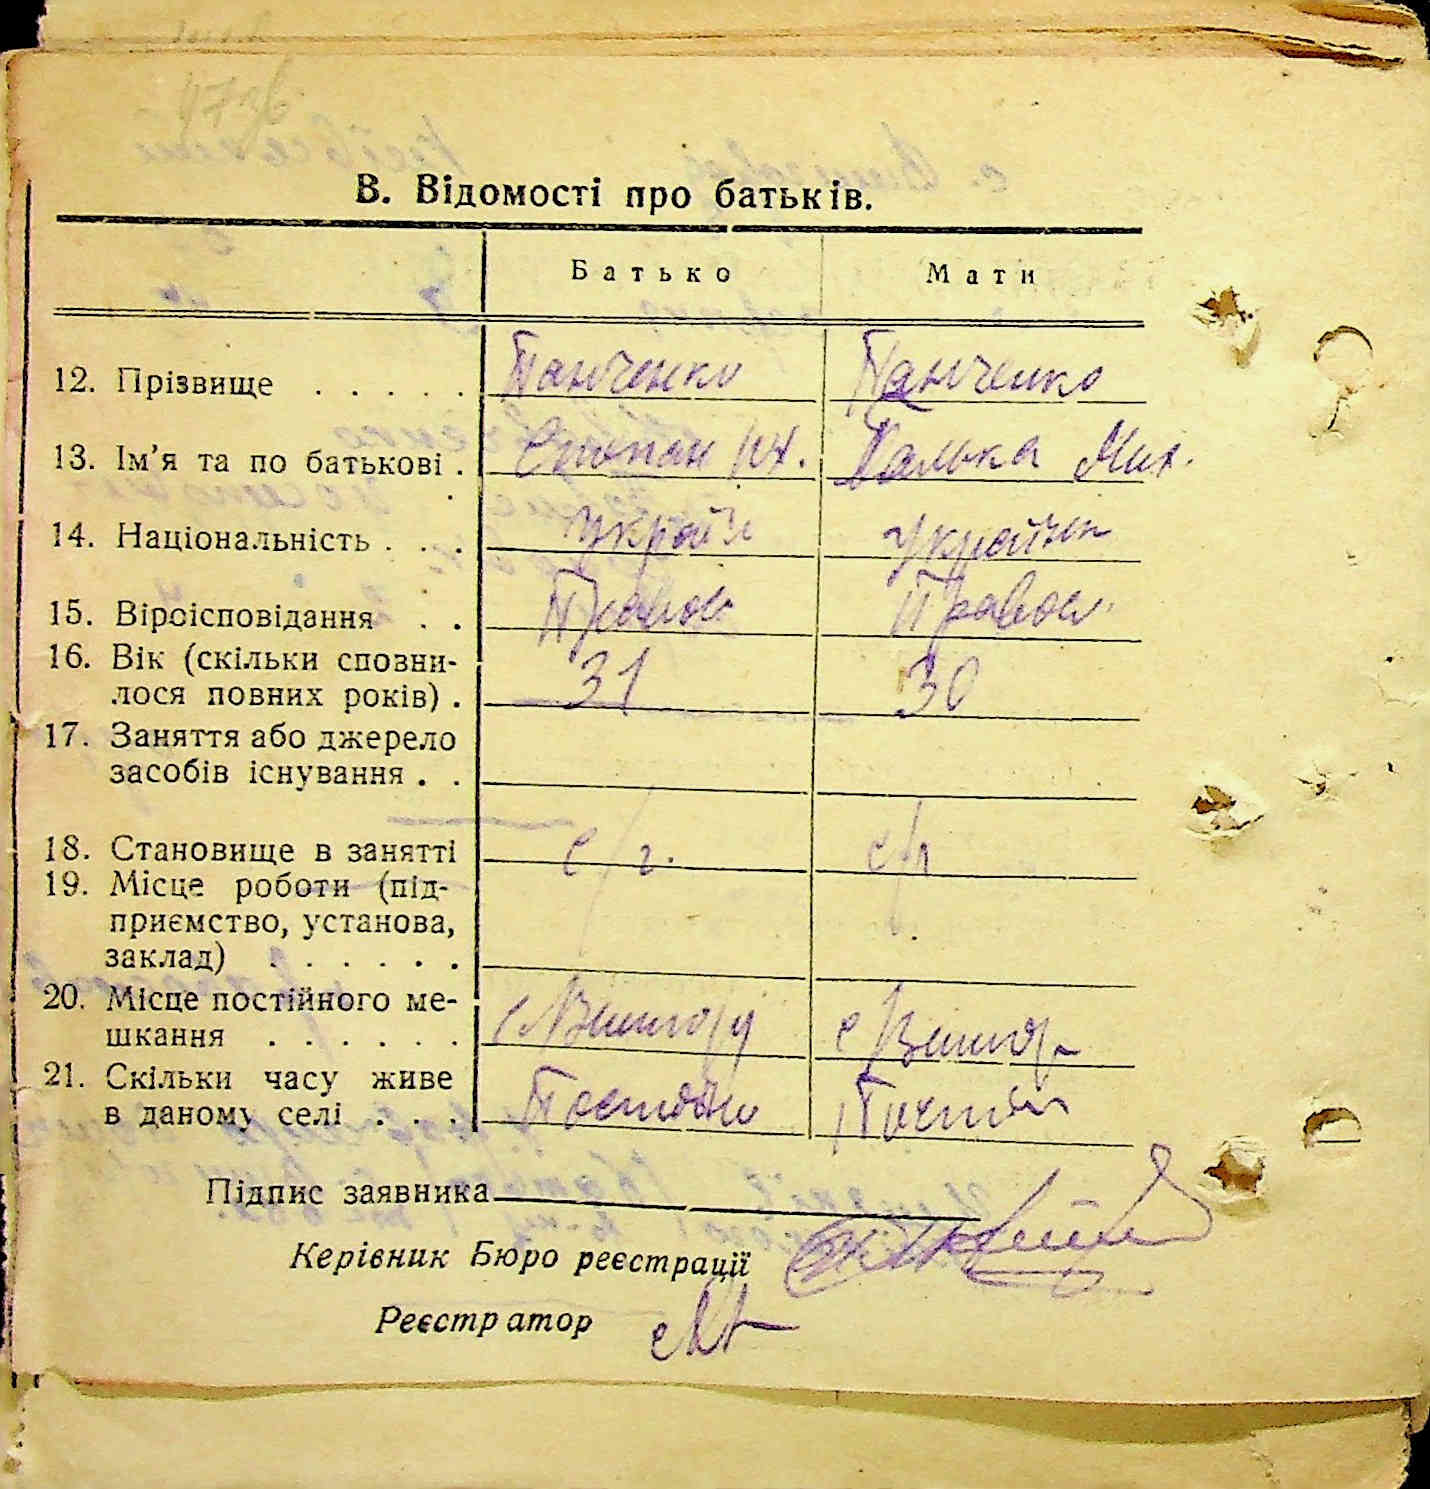 В. Відомості про батьків.
Батько Мати
12. Прізвище . . . . . Панченко Панченко
13. Ім'я та по батькові . Степан Их. Галька Мих.
14. Національність . . . Україн Україн
15. Віроісповідання . . Правосл Правосл.
16. Вік (скільки сповни-
лося повних років) . 31 30
17. Заняття або джерело
засобів існування . .
18. Становище в занятті с/г. с/г
19. Місце роботи (під-
приємство, установа,
заклад) . . . . . .
20. Місце постійного ме-
шкання . . . . . .
21. Скільки часу живе
в даному селі . . . Постійно
Підпис заявника
Керівник Бюро реєстрації
Реєстратор